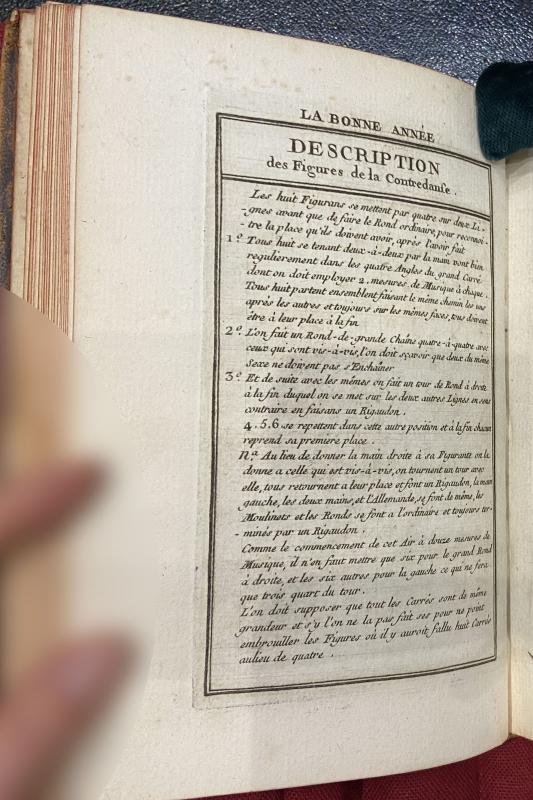 LA BONNE ANNÉE
DESCRIPTION
des Figures de la Contredanse.
Les huit Figurans se mettent par quatre sur deux Li-
-gnes avant que de faire le Rond ordinaire, pour reconnoi-
-tre la place qu'ils doivent avoir, après l'avoir fait
1.º Tous huit se tenant deux-à-deux par la main vont bien
regulierement dans les quatre Angles du grand Carré
dont on doit employer 2. mesures de Musique à chaque.
Tous huit partent ensemble faisant le même chemin les uns
après les autres et toujours sur les mêmes faces, tous doivent
être à leur place à la fin
2.º L'on fait un Rond-de-grande Chaîne quatre-à-quatre avec
ceux qui sont vis-à-vis, l'on doit sçavoir que deux du même
Sexe ne doivent pas s'Enchaîner
3.º Et de suite avec les mêmes on fait un tour de Rond à droite
à la fin duquel on se met sur les deux autres Lignes en sens
contraire en faisans un Rigaudon.
4. 5. 6 se repettent dans cette autre position et à la fin chacun
reprend sa premiere place.
N.ª Au lieu de donner la main droite à sa Figurante on la
donne a celle qui est vis-à-vis, on tournent un tour avec
elle, tous retournent a leur place et font un Rigaudon, la main
gauche, les deux mains, et l'Allemande, se font de même, les
Moulinets et les Ronds se font a l'ordinaire et toujours ter-
-minés par un Rigaudon.
Comme le commencement de cet Air à douze mesures de
Musique, il n'en faut mettre que six pour le grand Rond
à droite, et les six autres pour la gauche ce qui ne fera
que trois quart du tour.
L'on doit supposer que tout les Carrés sont de même
grandeur et s'y l'on ne la pas fait ses pour ne point
embrouiller les Figures où il y auroit fallu huit Carrés
aulieu de quatre.